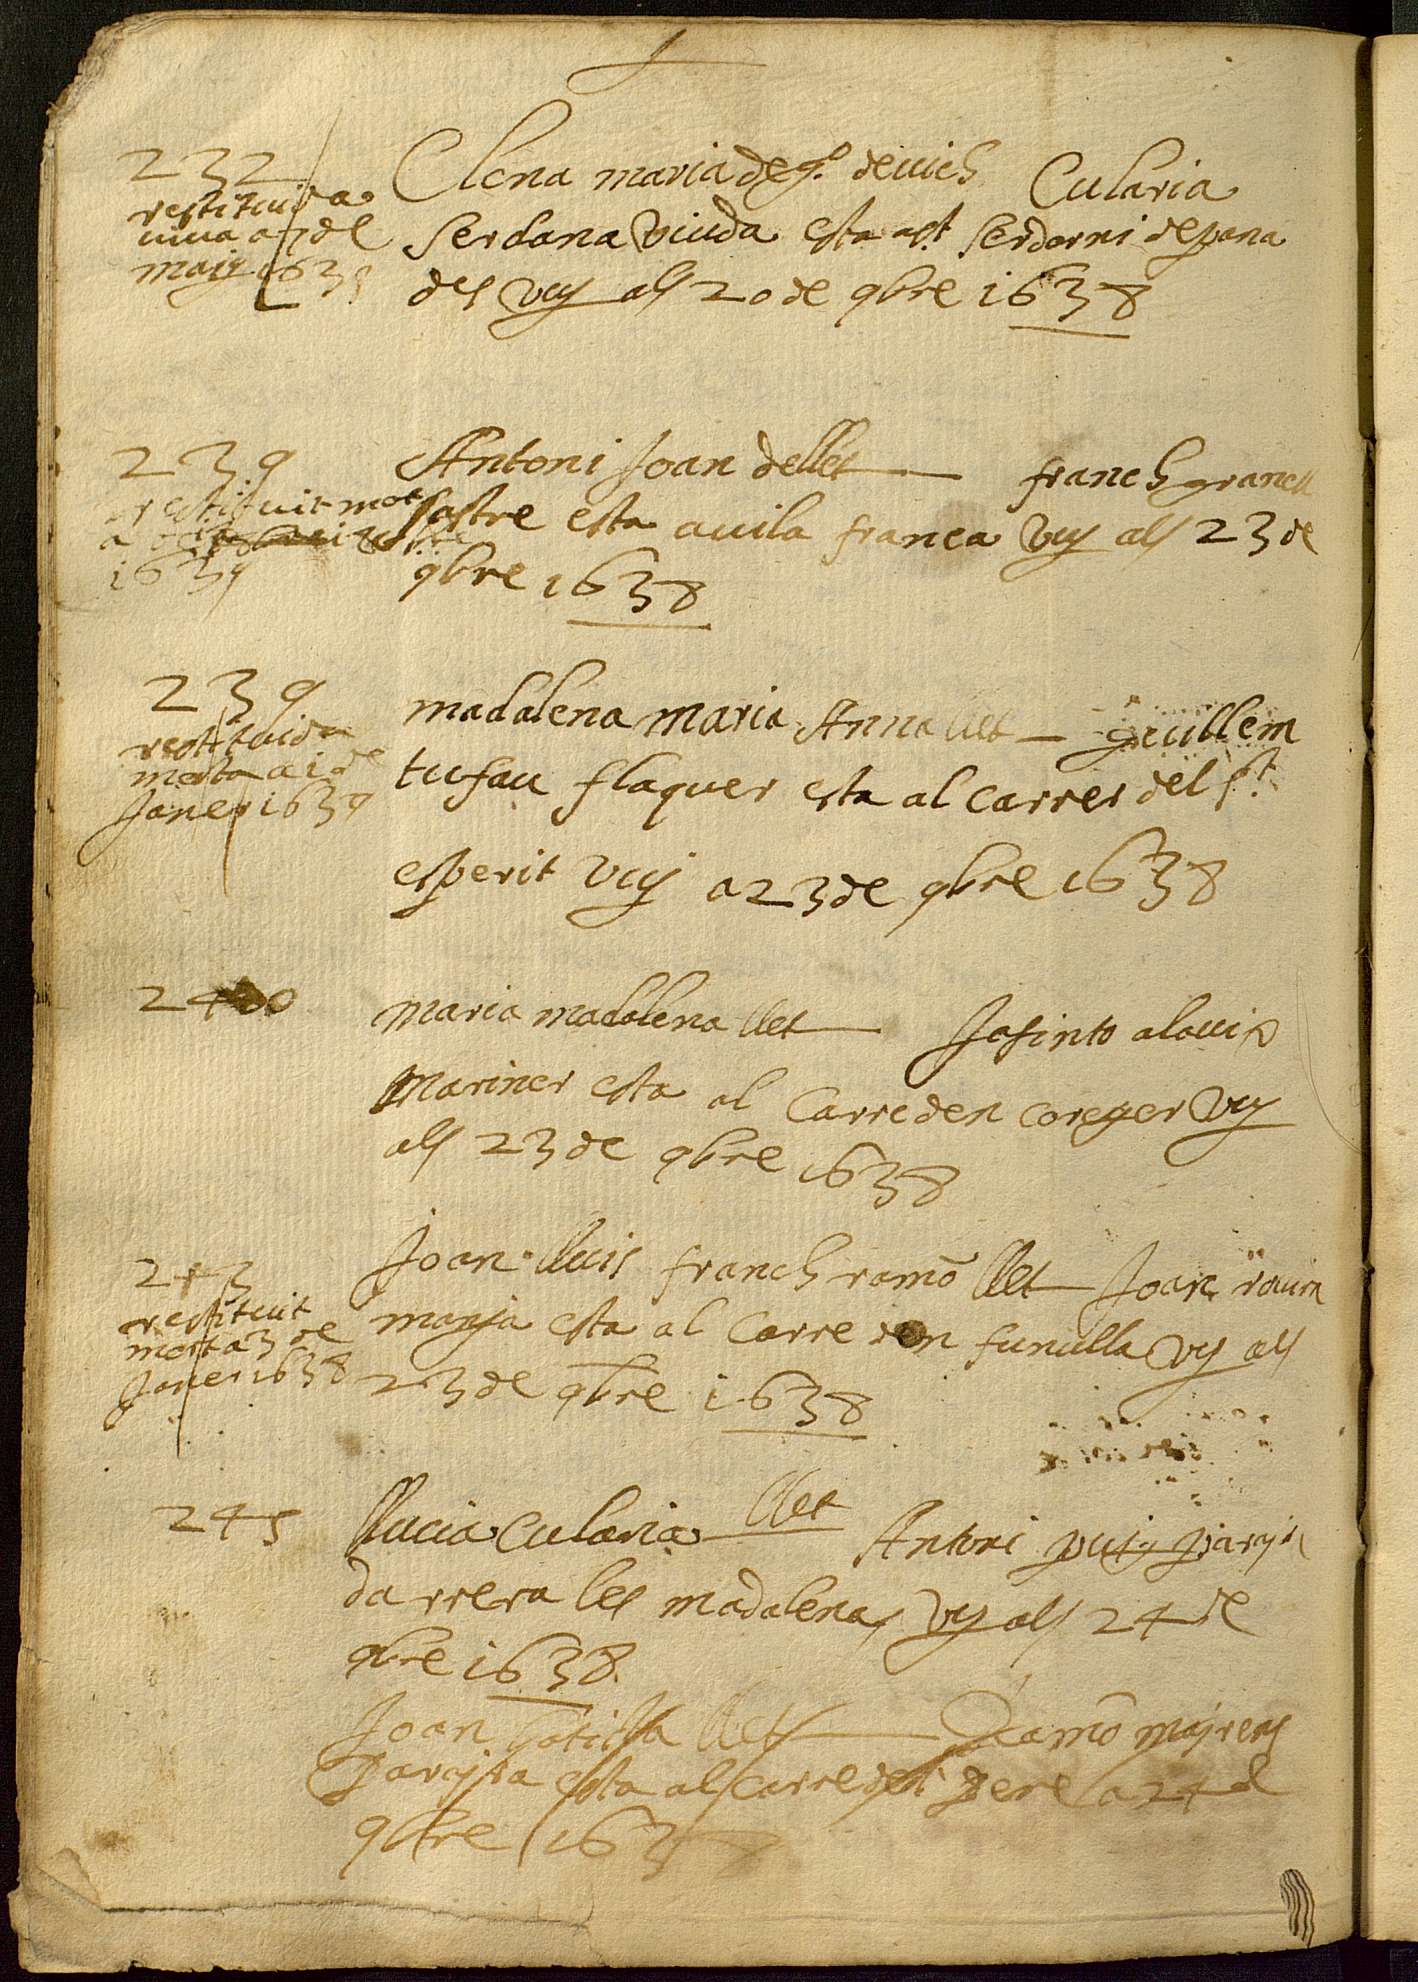 232
restituida
viva a 7 del
maig 1639
Elena maria de qo. de vich Eularia
Serdana viuda esta a st Serdorni de pana
des vuy als 20 de 9bre 1638
239
restituit mort
a
1639
Antoni Joan de llet franch granell
sastre esta a vila franca vuy als 23 de
9bre 1638
239
restituida
morta a 1 de
Janer 1639
madalena maria Anna llet guillem
tufau flaquer esta al carrer del st.
esperit vuy a 23 de 9bre 1638
240
maria madalena llet Jasinto alavis
Mariner esta al Carre den coreger vuy
als 23 de 9bre 1638
243
restituit
mort a 3 de
Janer 1638
Joan lluis franch ramō llet Joan
manja esta al Carre den funulla vuy als
23 de 9bre 1638
245
llucia Eularia llet Antoni puig
darrera les madalenas vuy als 24 de
9bre 1638
Joan batista llet Ramō majrens
Parayra esta al carre de st pere a 24 de
9bre 1638